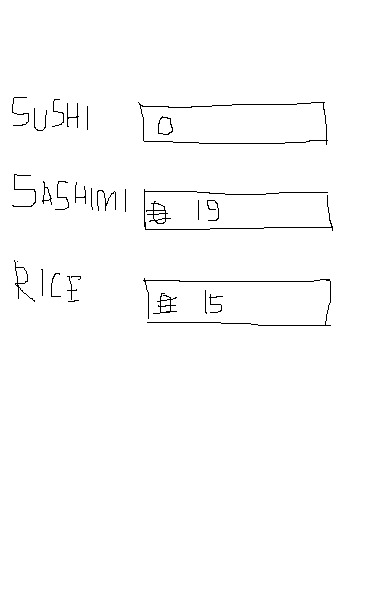 SUSHI 0
SASHIMI 19
RICE 15